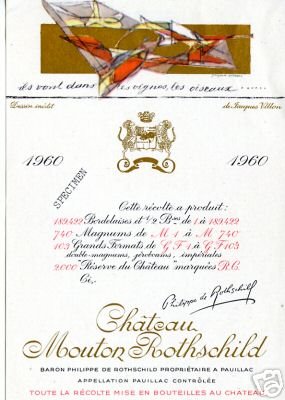 ils vont dans les vignes, les oiseaux......
Dessin inédit de Jacques Villon
1960 1960
SPECIMEN
Cette récolte a produit:
189.422 Bordelaises et 1/2 Bses de 1 à 189.422
740 Magnums de M 1 à M 740
103 Grands Formats de G F 1 à G F 103
double-magnums, jéroboams, impériales
2.000 Réserve du Château marquées R.C.
Ci,
Philippe de Rothschild
Château
Mouton Rothschild
BARON PHILIPPE DE ROTHSCHILD PROPRIÉTAIRE A PAUILLAC
APPELLATION PAUILLAC CONTRÔLÉE
TOUTE LA RÉCOLTE MISE EN BOUTEILLES AU CHATEAU